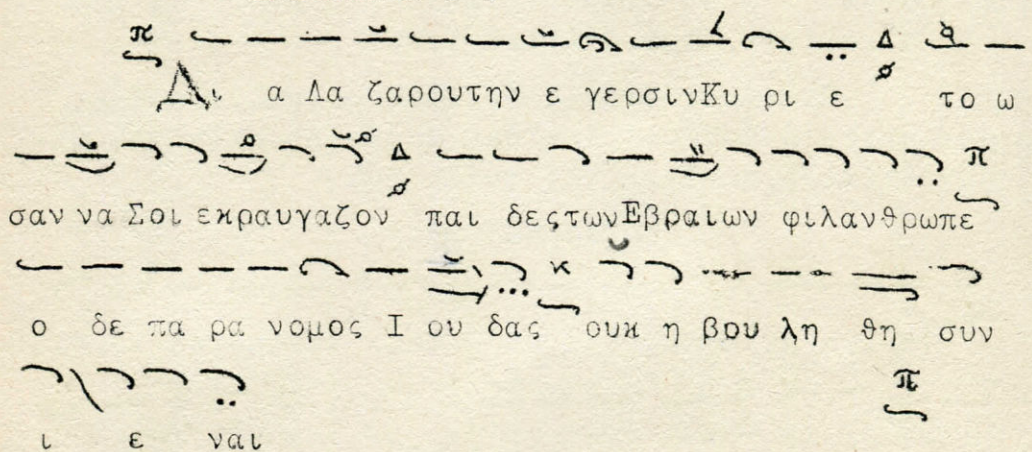 Δι α Λα ζαρουτην ε γερσινΚυ ρι ε το ω
σαν να Σοι εκραυγαζον παι δεςτωνΕβραιων φιλανθρωπε
ο δε πα ρα νομος Ι ου δας ουκ η βου λη θη συν
ι ε ναι